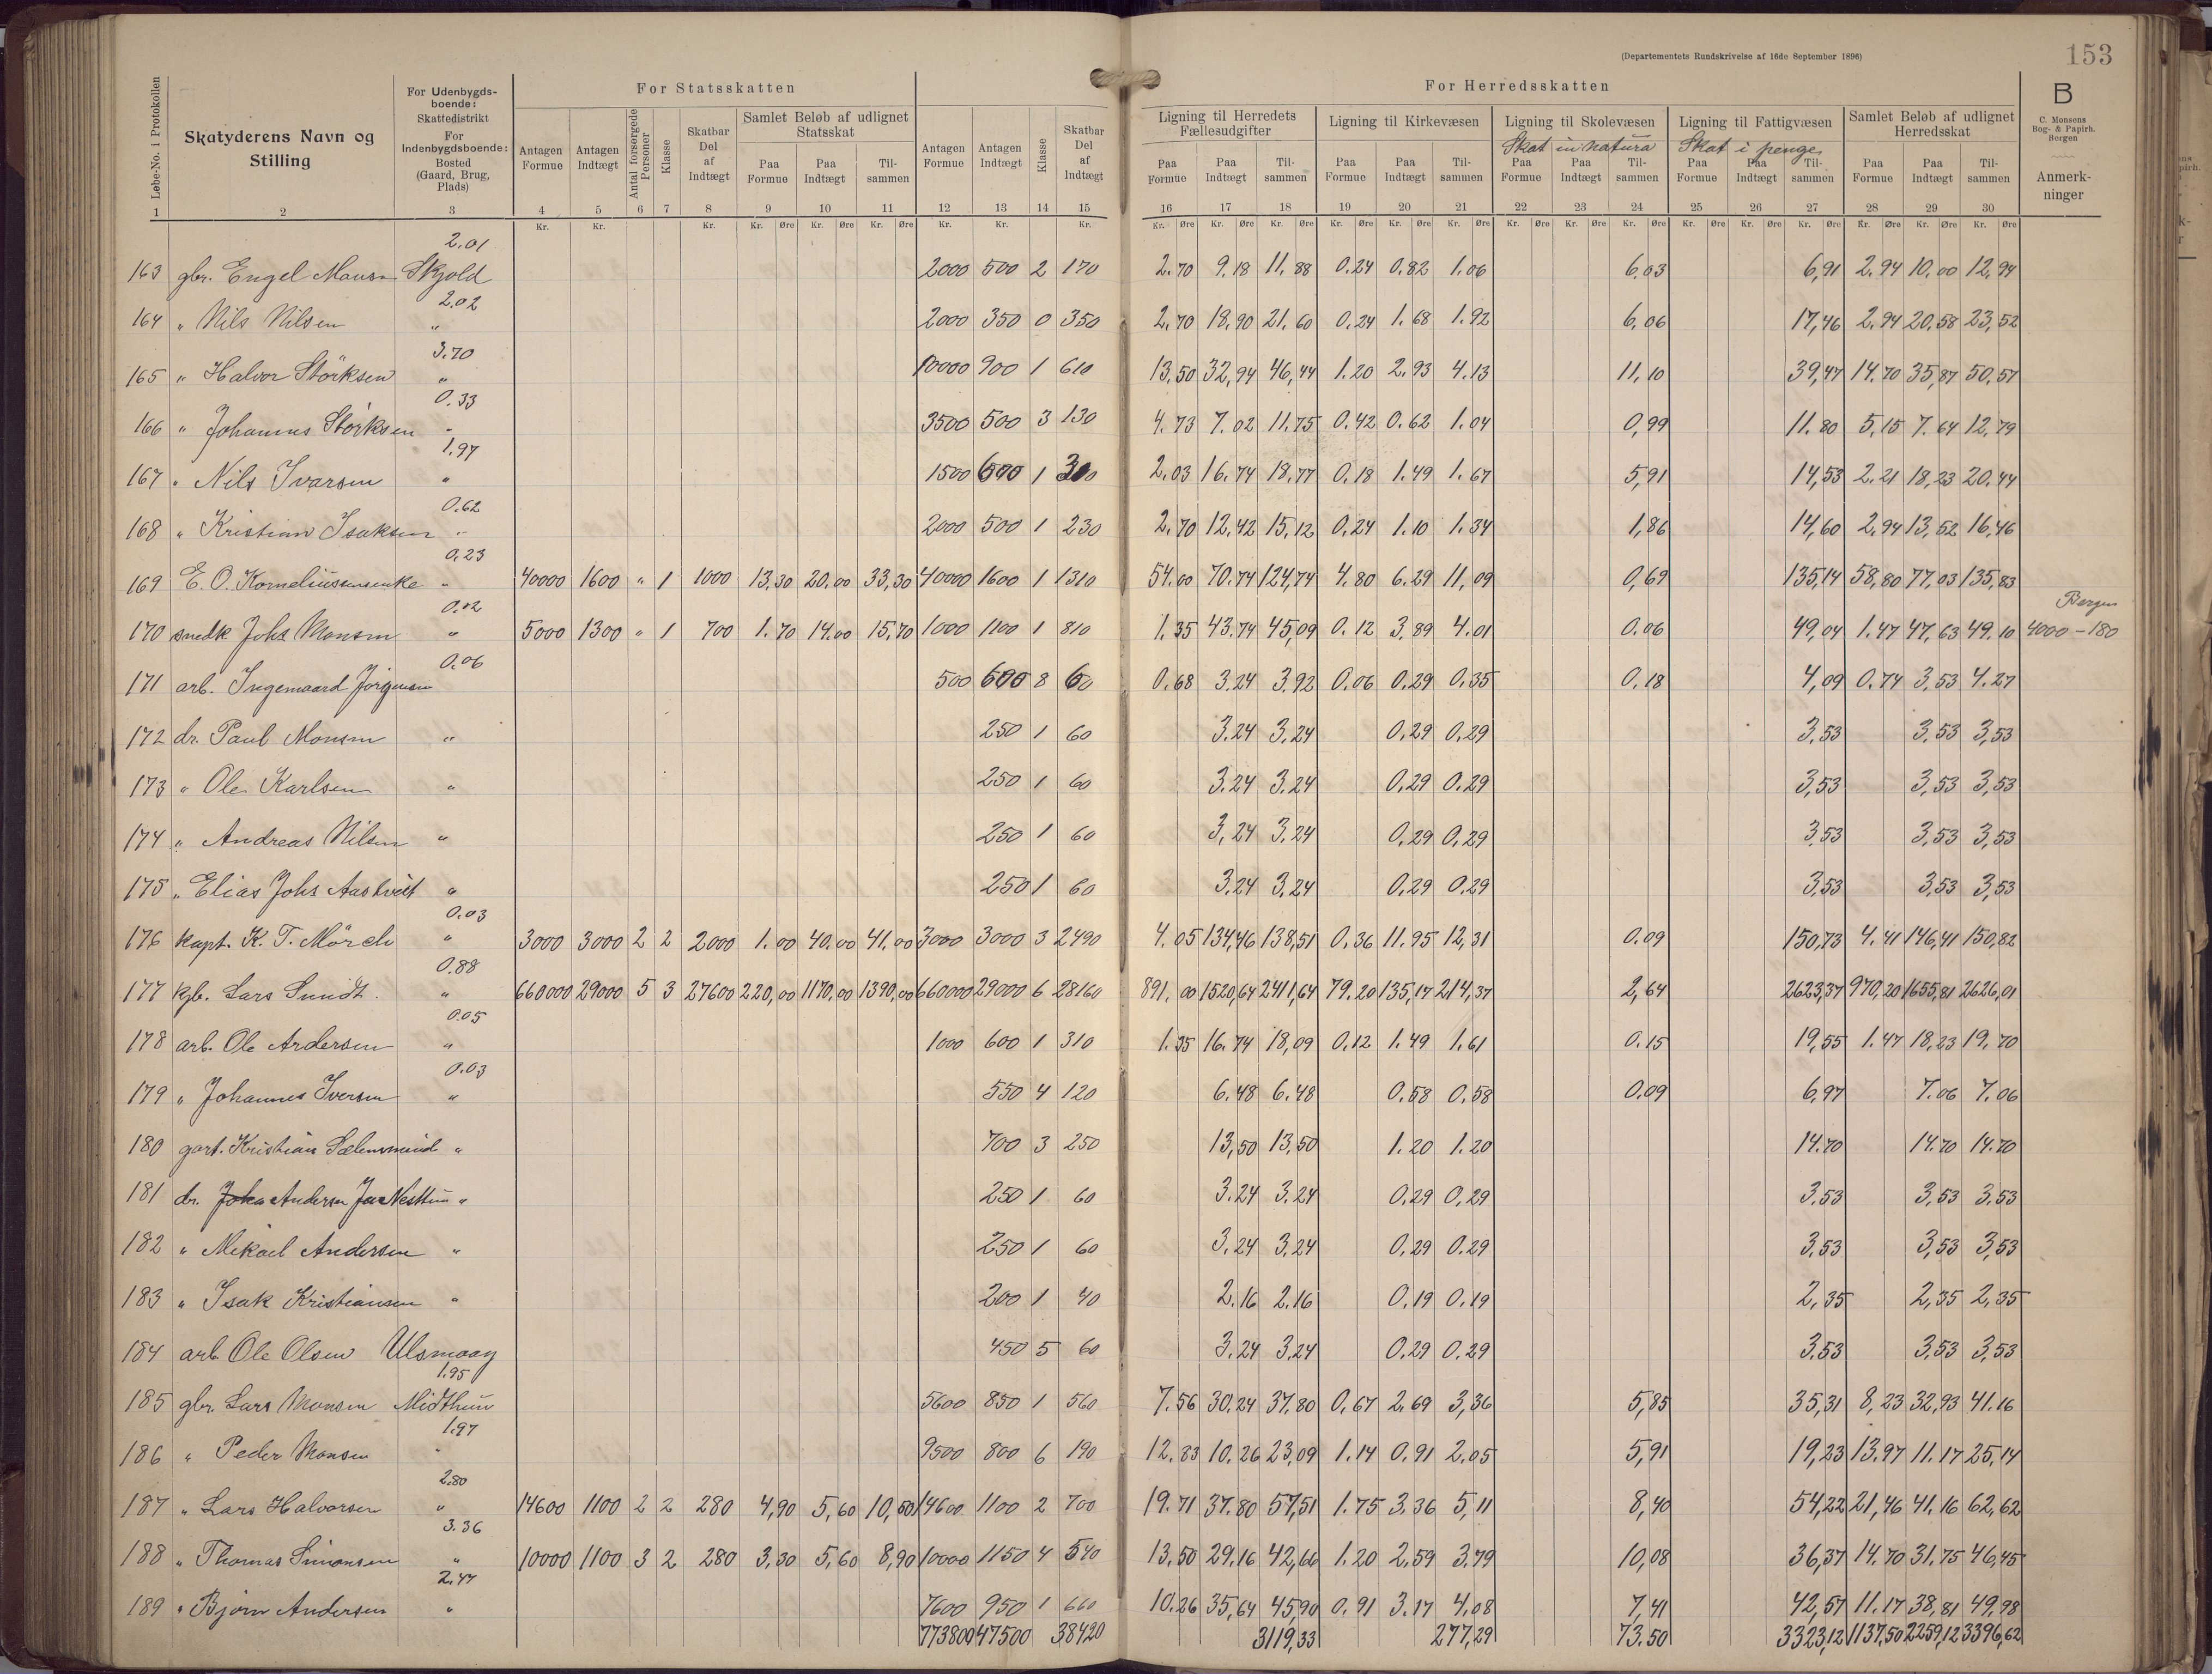 (Departementets Rundskrivelse af 16de September 1896)
153
Løbe-No. i Protokollen
Skatyderens Navn og Stilling
For Udenbygdsboende: Skattedistrikt For Indenbygdsboende: Bosted (Gaard, Brug, Plads)
For Statsskatten
Antagen Formue
Antagen Indtægt
Antal forsørgede Personer
Klasse
Skatbar Del af Indtægt
Samlet Beløb af udlignet Statsskat
Paa Formue
Paa Indtægt
Tilsammen
Antagen Formue
Antagen Indtægt
Klasse
Skatbar Del af Indtægt
For Herredsskatten
Ligning til Herredets Fællesudgifter
Paa Formue
Paa Indtægt
Tilsammen
Ligning til Kirkevæsen
Paa Formue
Paa Indtægt
Tilsammen
Ligning til Skolevæsen
Skat in natura
Paa Formue
Paa Indtægt
Tilsammen
Ligning til Fattigvæsen
Skat i penge
Paa Formue
Paa Indtægt
Tilsammen
Samlet Beløb af udlignet Herredsskat
Paa Formue
Paa Indtægt
Tilsammen
B
C. Monsens Bog- & Papirh. Bergen
Anmerkninger
1 2 3 4 5 6 7 8 9 10 11 12 13 14 15 16 17 18 19 20 21 22 23 24 25 26 27 28 29 30
Kr. Kr. Kr. Kr. Øre Kr. Øre Kr. Øre Kr. Kr. Kr. Kr. Øre Kr. Øre Kr. Øre Kr. Øre Kr. Øre Kr. Øre Kr. Øre Kr. Øre Kr. Øre Kr. Øre Kr. Øre Kr. Øre Kr. Øre Kr. Øre Kr. Øre
2.01
163 gbr. Engel Monsen Skjold 2000 500 2 170 2.70 9.18 11.88 0.24 0.82 1.06 6,03 6,91 2.94 10,00 12,94
2.02
164 " Nils Nilsen " 2000 350 0 350 2.70 18.90 21.60 0.24 1.68 1.92 6,06 17,46 2.94 20,58 23,52
3.70
165 " Halvor Störksen " 10000 900 1 610 13,50 32,94 46,44 1.20 2.93 4.13 11,10 39,47 14.70 35,87 50,57
0.33
166 " Johannes Störksen " 3500 500 3 130 4.73 7.02 11.75 0.42 0.62 1.04 0,99 11.80 5,15 7.64 12,79
1,97
167 " Nils Ivarsen " 1500 600 1 310 2.03 16.74 18,77 0.18 1.49 1.67 5,91 14,53 2.21 18,23 20.44
0.62
168 " Kristian Isaksen " 2000 500 1 230 2.70 12,42 15,12 0.24 1.10 1.34 1,86 14,60 2.94 13,52 16,46
0.23
169 E. O. Korneliussensenke " 40000 1600 " 1 1000 13,30 20,00 33,30 40000 1600 1 1310 54.00 70.74 124,74 4.80 6.29 11,09 0,69 135,14 58,80 77,03 135,83
0.02
170 snedk Johs Monsen " 5000 1300 " 1 700 1.70 14.00 15,70 1000 1100 1 810 1.35 43.74 45,09 0.12 3,89 4.01 0.06 49,04 1.47 47,63 49.10 Bergen 4000-180
0.06
171 arb. Ingemaard Jörgensen 500 600 8 60 0.68 3.24 3.92 0.06 0.29 0.35 0.18 4,09 0.74 3,53 4.27
172 dr. Paul Monsen " 250 1 60 3.24 3,24 0.29 0.29 3,53 3.53 3,53
173 " Ole Karlsen " 250 1 60 3.24 3.24 0.29 0.29 3,53 3,53 3,53
174 " Andreas Nilsen " 250 1 60 3,24 3.24 0.29 0.29 3.53 3,53 3,53
175 " Elias Johs Aastveit " 250 1 60 3.24 3.24 0.29 0.29 3,53 3,53 3,53
0.03
176 kapt. K. T. Mörch " 3000 3000 2 2 2000 1.00 40.00 41.00 3000 3000 3 2490 4.05 134,46 138,51 0.36 11.95 12,31 0.09 150,73 4.41 146,41 150,82
0.88
177 kjb. Lars Sundt. " 660000 29000 5 3 27600 220,00 1170,00 1390,00 660000 29000 6 28160 891.00 1520,64 2411,64 79.20 135,17 214,37 2,64 2623,37 970,20 1655,81 2626,01
0.05
178 arb. Ole Andersen " 1000 600 1 310 1.35 16.74 18,09 0.12 1.49 1.61 0.15 19,55 1.47 18,23 19.70
0.03
179 " Johannes Iversen " 550 4 120 6.48 6.48 0.58 0.58 0.09 6,97 7.06 7.06
180 gart. Kristian Sælensmind " 700 3 250 13,50 13,50 1.20 1.20 14.70 14.70 14.70
181 dr. Andersen Nesttun " 250 1 60 3.24 3.24 0.29 0.29 3.53 3,53 3,53
182 " Mikael Andersen " 250 1 60 3.24 3,24 0.29 0.29 3,53 3,53 3,53
183 " Isak Kristiansen " 200 1 40 2.16 2.16 0.19 0.19 2,35 2,35 2,35
184 arb. Ole Olsen Ulsmaag 450 5 60 3.24 3.24 0.29 0.29 3.53 3,53 3,53
1.95
185 gbr. Lars Monsen Midthun 5600 850 1 560 7.56 30,24 37.80 0,67 2.69 3,36 5,85 35,31 8,23 32,93 41.16
1.97
186 " Peder Monsen " 9500 800 6 190 12.83 10.26 23,09 1.14 0.91 2.05 5,91 19,23 13.97 11.17 25,14
2.80
187 " Lars Halvorsen " 14600 1100 2 2 280 4,90 5,60 10,50 14600 1100 2 700 19.71 37.80 57,51 1.75 3.36 5,11 8,40 54,22 21,46 41.16 62,62
3.36
188 " Thomas Simonsen " 10000 1100 3 2 280 3,30 5,60 8,90 10000 1150 4 540 13,50 29,16 42,66 1.20 2,59 3.79 10,08 36,37 14.70 31.75 46,45
2.47
189 " Bjørn Andersen " 7600 950 1 660 10.26 35,64 45,90 0.91 3.17 4,08 7,41 42,57 11.17 38,81 49,98
773800 47500 38420 3119,33 277,29 73.50 3323,12 1137,50 2259,12 3396,62